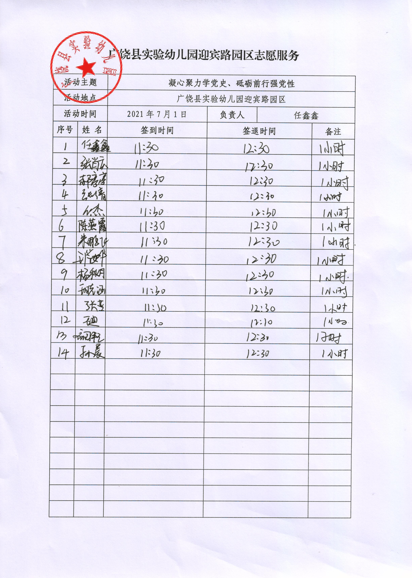 广饶县实验幼儿园迎宾路园区志愿服务
活动主题 凝心聚力学党史、砥砺前行强党性
活动地点 广饶县实验幼儿园迎宾路园区
活动时间 2021年7月1日 负责人 任鑫鑫
序号 姓名 签到时间 签退时间 备注
1 任鑫鑫 11:30 12:30 1小时
2 11:30 12:30 1小时
3 11:30 12:30 1小时
4 11:30 12:30 1小时
5 11:30 12:30 1小时
6 陈英霞 11:30 12:30 1小时
7 11:30 12:30 1小时
8 11:30 12:30 1小时
9 11:30 12:30 1小时
10 11:30 12:30 1小时
11 11:30 12:30 1小时
12 11:30 1小时
13 11:30 12:30 1小时
14 孙晨 11:30 12:30 1小时